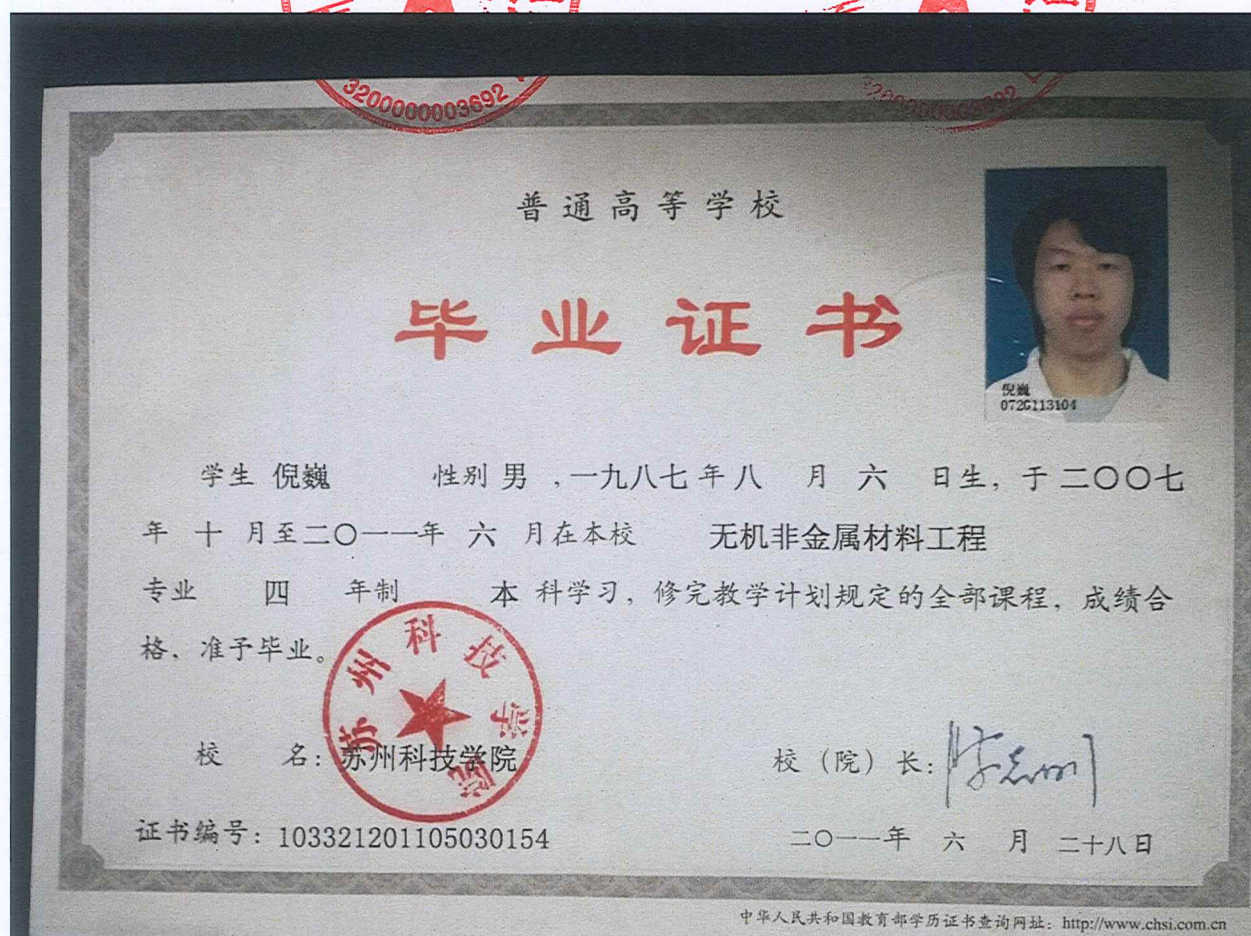 3200000003692
普通高等学校
毕业证书
倪巍
072G113104
学生 倪巍 性别 男 ,一九八七年八 月 六 日生, 于二〇〇七
年 十 月至二〇一一年 六 月在本校 无机非金属材料工程
专业 四 年制 本 科学习, 修完教学计划规定的全部课程, 成绩合
格, 准予毕业。
苏州科技学院
校 名: 苏州科技学院 校(院)长:
证书编号: 103321201105030154 二〇一一年 六 月 二十八日
中华人民共和国教育部学历证书查询网址: http://www.chsi.com.cn